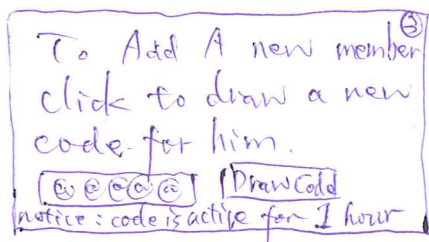 ③
To Add A new member
click to draw a new
code for him.
@ @ @ @ @ Draw Code
notice : code is active for 1 hour